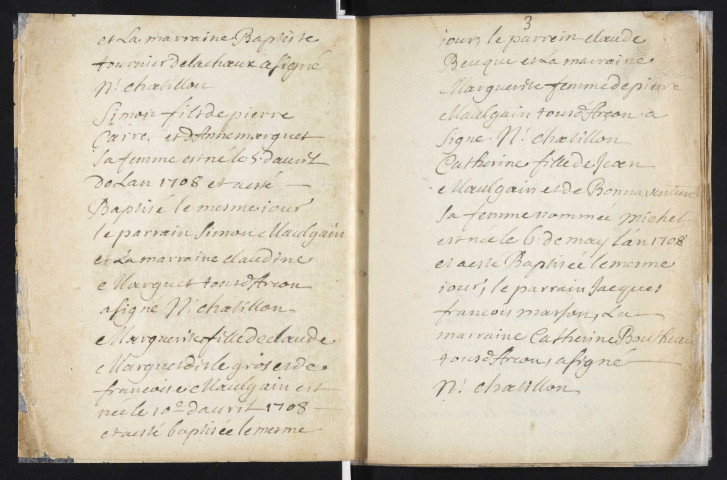 et La marraine Baptiste
tournier de la chaux a signé
N: chatillon
Simon fils de pierre
Carre, et d'Anne marguet
sa femme est né le 5: d'avril
De Lan 1708 et a esté
Baptisé le mesme jour
le parrain Simon Maulgain
et La marraine claudine
Marguet tous d'Arcon
a signé N: chatillon
Marguerite fille de claude
Marguet dit le gros et de
francoise Maulgain est
née le 10e d'avril 1708
et a esté baptisée le mesme
3
jour, le parrein claude
Beuque et La marraine
Marguerite femme de pierre
Maulgain tous d'Arcon a
signe. N: chatillon
Catherine fille de Jean
Maulgain et de Bonnaventure
sa femme nommée michel
est née le 6: de may l'an 1708
et a esté Baptisée le mesme
jour, le parrain Jacques
francois marson, La
marraine Catherine
tous d'Arcon, a signé
N: chatillon